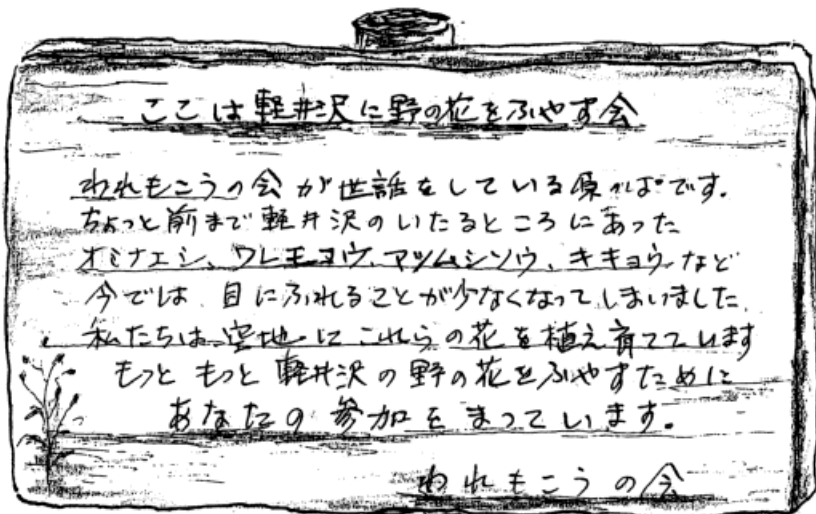 ここは軽井沢に野の花をふやす会
われもこうの会が世話をしている原っぱです。
ちょっと前まで軽井沢のいたるところにあった
オミナエシ、ワレモコウ、マツムシソウ、キキョウなど
今では、目にふれることが少なくなってしまいました。
私たちは空地にこれらの花を植え育てています
もっともっと軽井沢の野の花をふやすために
あなたの参加をまっています。
われもこうの会